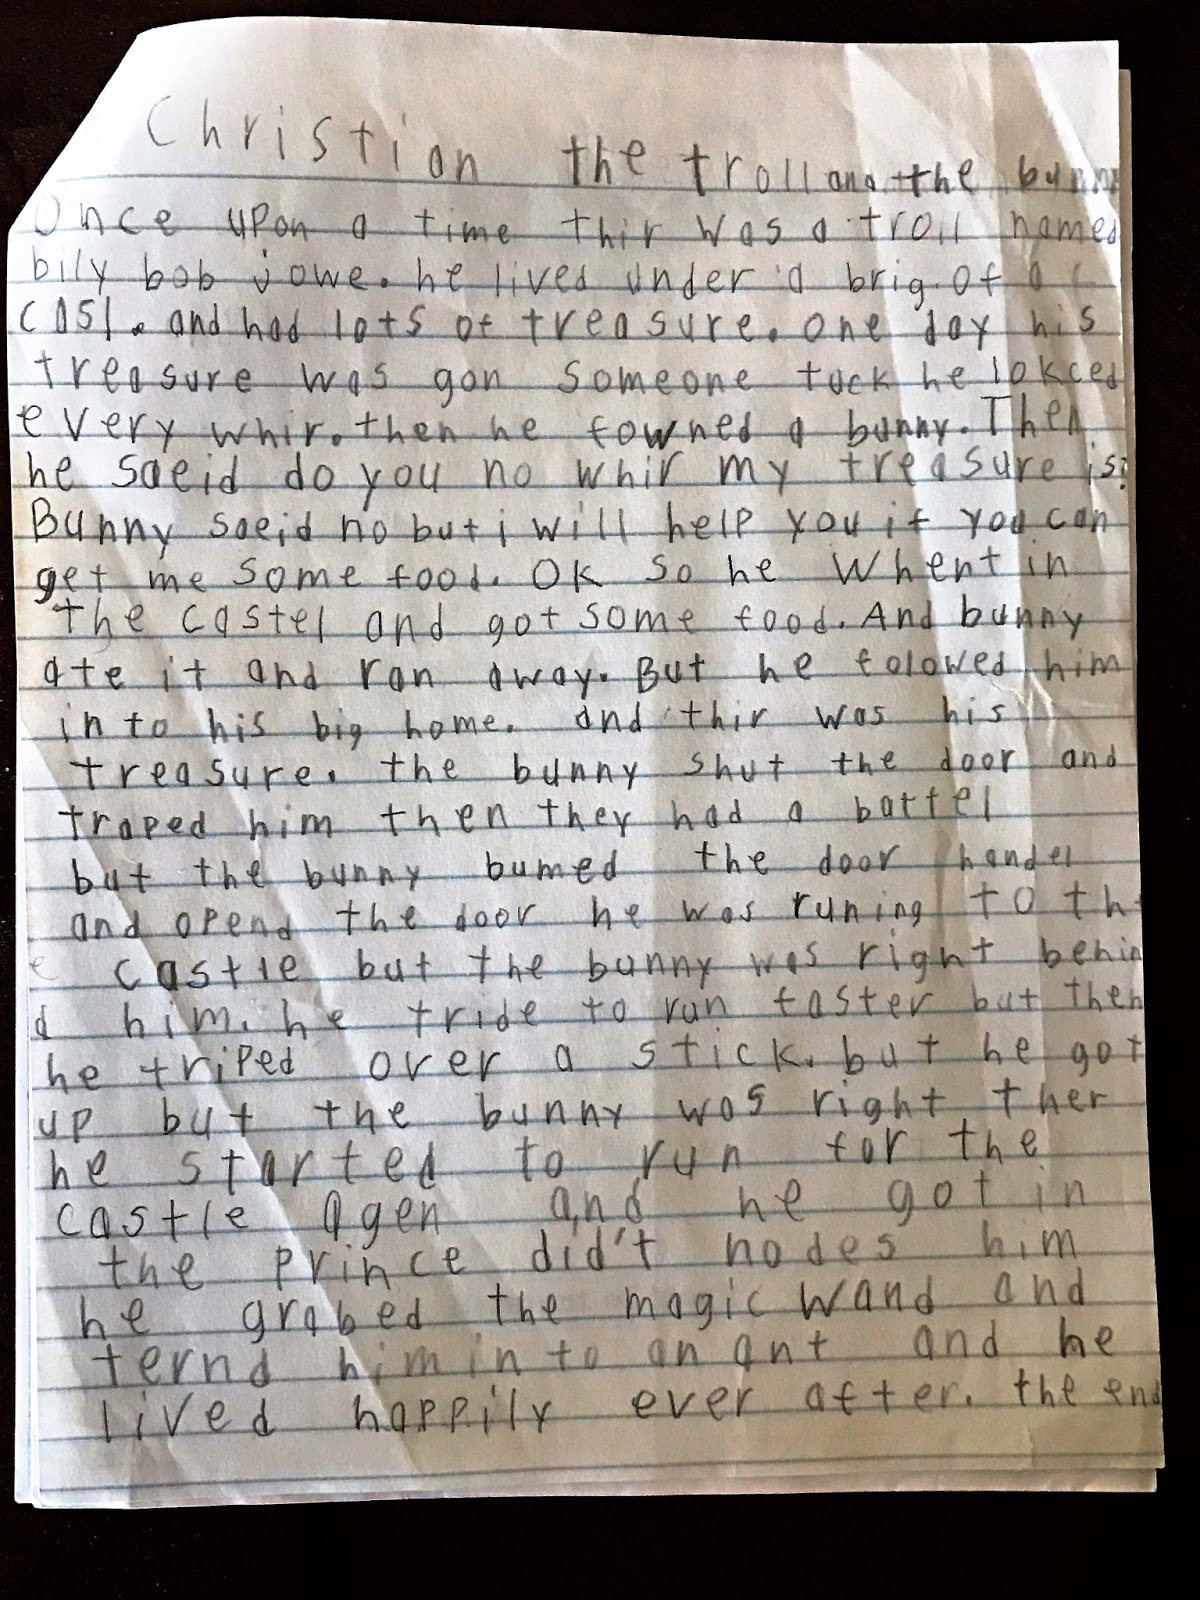 Christian the troll and the bunny
Once upon a time thir was a troll named
bily bob jowe. he lived under a brig. of a
casl. and had lots of treasure. one day his
treasure was gon someone tuck he lokced
every whir. then he fowned a bunny. Then
he saeid do you no whir my treasure is?
Bunny saeid no but i will help you if you can
get me some food. OK so he whent in
the castel and got some food. And bunny
ate it and ran away. But he folowed him
into his big home. and thir was his
treasure. the bunny shut the door and
traped him then they had a battel
but the bunny bumed the door handel
and opend the door he was runing to th
e castle but the bunny was right behin
d him. he tride to run faster but then
he triped over a stick. but he got
up but the bunny was right ther
he started to run for the
castle agen and he got in
the prince did't nodes him
he grabed the magic wand and
ternd him into an ant and he
lived happily ever after. the end